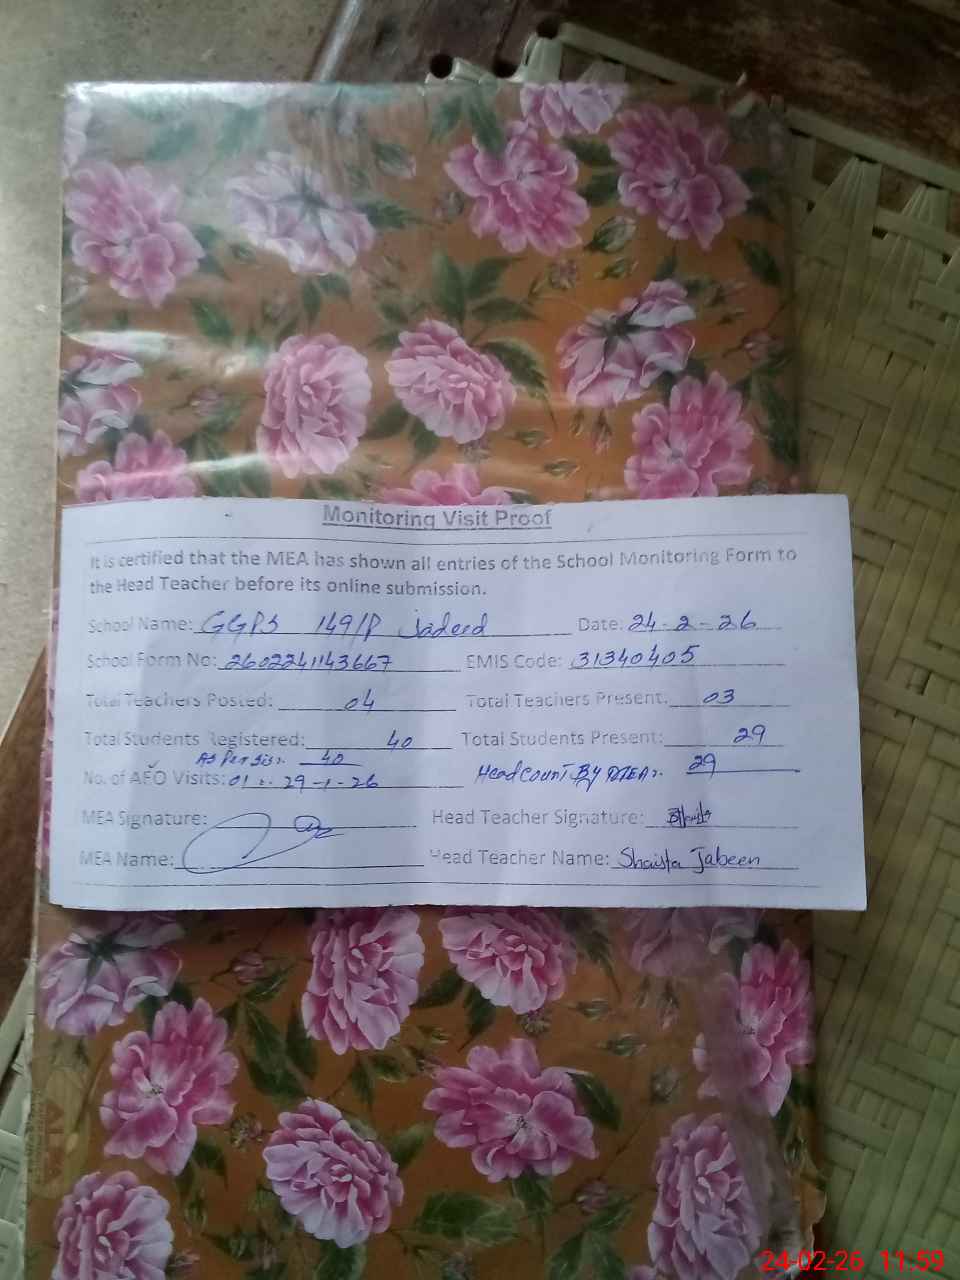 Monitoring Visit Proof
It is certified that the MEA has shown all entries of the School Monitoring Form to
the Head Teacher before its online submission.
School Name: GGPS 149/P Jadeed Date: 24-2-26
School Form No: 2602241143667 EMIS Code: 31340405
Total Teachers Posted: 04 Total Teachers Present: 03
Total Students Registered: 40 Total Students Present: 29
As Per Sis: 40
No. of AEO Visits: 01 : 29-1-26 Head Count By MEA: 29
MEA Signature: Head Teacher Signature:
MEA Name: Head Teacher Name: Shaista Jabeen
24-02-26 11:59